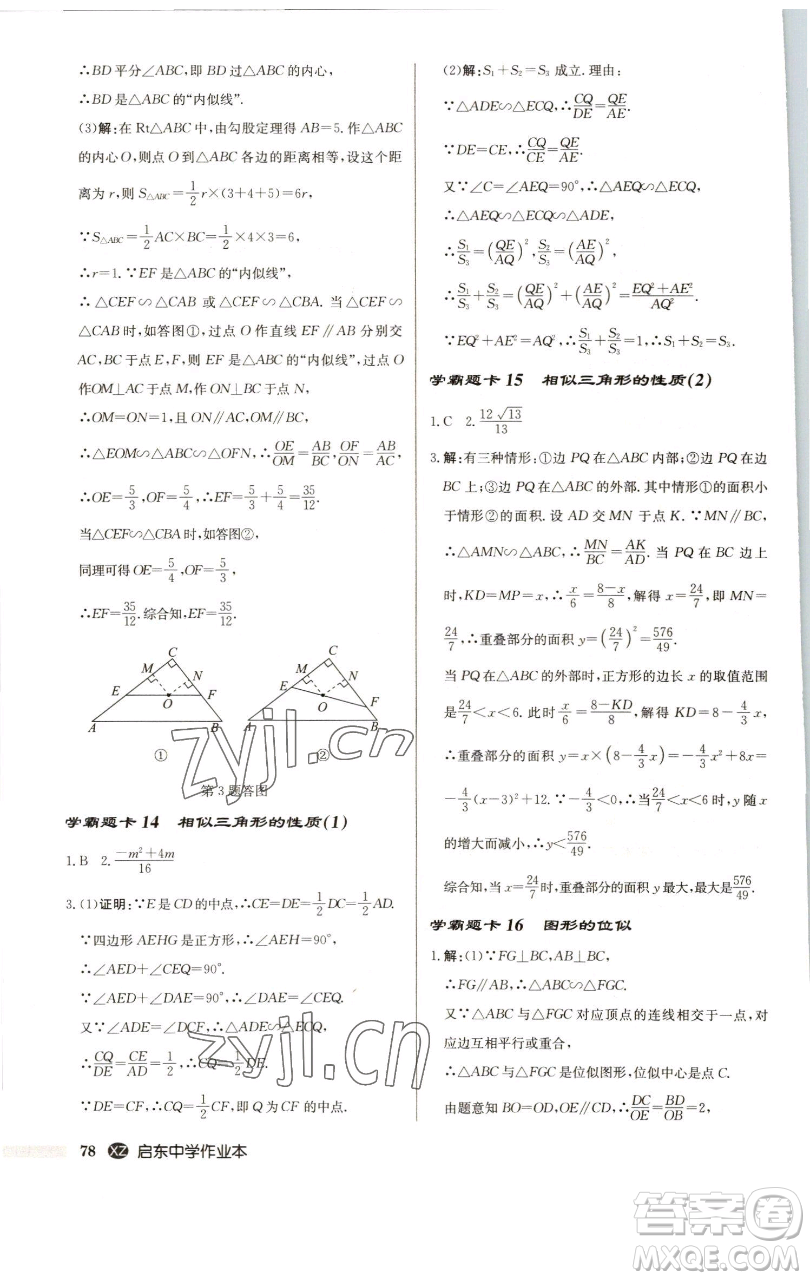 ∴BD平分∠ABC,即BD过△ABC的内心,
∴BD是△ABC的“内似线”.
(3)解:在Rt△ABC中,由勾股定理得AB=5.作△ABC
的内心O,则点O到△ABC各边的距离相等,设这个距
离为r,则S△ABC=1/2r×(3+4+5)=6r,
∵S△ABC=1/2AC×BC=1/2×4×3=6,
∴r=1.∵EF是△ABC的“内似线”,
∴△CEF∽△CAB或△CEF∽△CBA.当△CEF∽
△CAB时,如答图①,过点O作直线EF∥AB分别交
AC,BC于点E,F,则EF是△ABC的内似线,过点O
作OM⊥AC于点M,ON⊥BC于点N,
∴OM=ON=1,且点O在线段EF上,
∴△EOM∽△ABC∽△OFN,∴OE/OM=AB/BC,OF/ON=AB/AC,
∴OE=5/3,OF=5/4,∴EF=5/3+5/4=35/12.
当△CEF∽△CBA时,如答图②,
同理可得OE=5/4,OF=5/3,
∴EF=35/12.综合知,EF=35/12.
C M N E O F A B
C M N E O F A B
① ②
第3题答图
学霸题卡14 相似三角形的性质(1)
1.B 2.(-m²+4m)/16
3.(1)证明:∵E是CD的中点,∴CE=DE=1/2DC=1/2AD.
∵四边形AEHG是正方形,∴∠AEH=90°,
∴∠AED+∠CEQ=90°.
∵∠AED+∠DAE=90°,∴∠DAE=∠CEQ.
又∵∠ADE=∠DCF,∴△ADE∽△ECQ,
∴CQ/DE=CE/AD=1/2,∴CQ=1/2DE.
∵DE=CE,∴CQ=1/2CF,即Q为CF的中点.
78 XZ 启东中学作业本
(2)解:S₁+S₂=S₃成立.理由:
∵△ADE∽△ECQ,∴CQ/DE=QE/AE.
∵DE=CE,∴CQ/CE=QE/AE.
又∵∠C=∠AEQ=90°,∴△AEQ∽△ECQ,
∴△AEQ∽△ECQ∽△ADE,
∴S₁/S₃=(QE/AQ)²,S₂/S₃=(AE/AQ)²,
∴S₁/S₃+S₂/S₃=(QE/AQ)²+(AE/AQ)²=(EQ²+AE²)/AQ².
∵EQ²+AE²=AQ²,∴S₁/S₃+S₂/S₃=1,∴S₁+S₂=S₃.
学霸题卡15 相似三角形的性质(2)
1.C 2.12√13/13
3.解:有三种情形:①边PQ在△ABC内部;②边PQ在边
BC上;③边PQ在△ABC的外部.其中情形①的面积小
于情形②的面积.设AD交MN于点K.∵MN∥BC,
∴△AMN∽△ABC,∴MN/BC=AK/AD.当PQ在边BC上
时,KD=MP=x,∴x/6=(8-x)/8,解得x=24/7,即MN=
24/7,∴重叠部分的面积y=(24/7)²=576/49.
当PQ在△ABC的外部时,正方形的边长x的取值范围
是24/7<x<6.此时x/6=(8-KD)/8,解得KD=8-4/3x,
∴重叠部分的面积y=x×(8-4/3x)=-4/3x²+8x=
-4/3(x-3)²+12.∵-4/3<0,∴当24/7<x<6时,y随x
的增大而减小,∴y<576/49.
综合知,当x=24/7时,重叠部分的面积y最大,最大是576/49.
学霸题卡16 图形的位似
1.解:(1)∵FG⊥BC,AB⊥BC,
∴FG∥AB,∴△ABC∽△FGC.
又∵△ABC与△FGC对应顶点的连线相交于一点,对
应边互相平行或重合,
∴△ABC与△FGC是位似图形,位似中心是点C.
由题意知BO=OD,CD∥OE,∴DC/OE=BD/OB=2,
zyjl.cn
zyjl.cn
答案圈
MXQE.COM